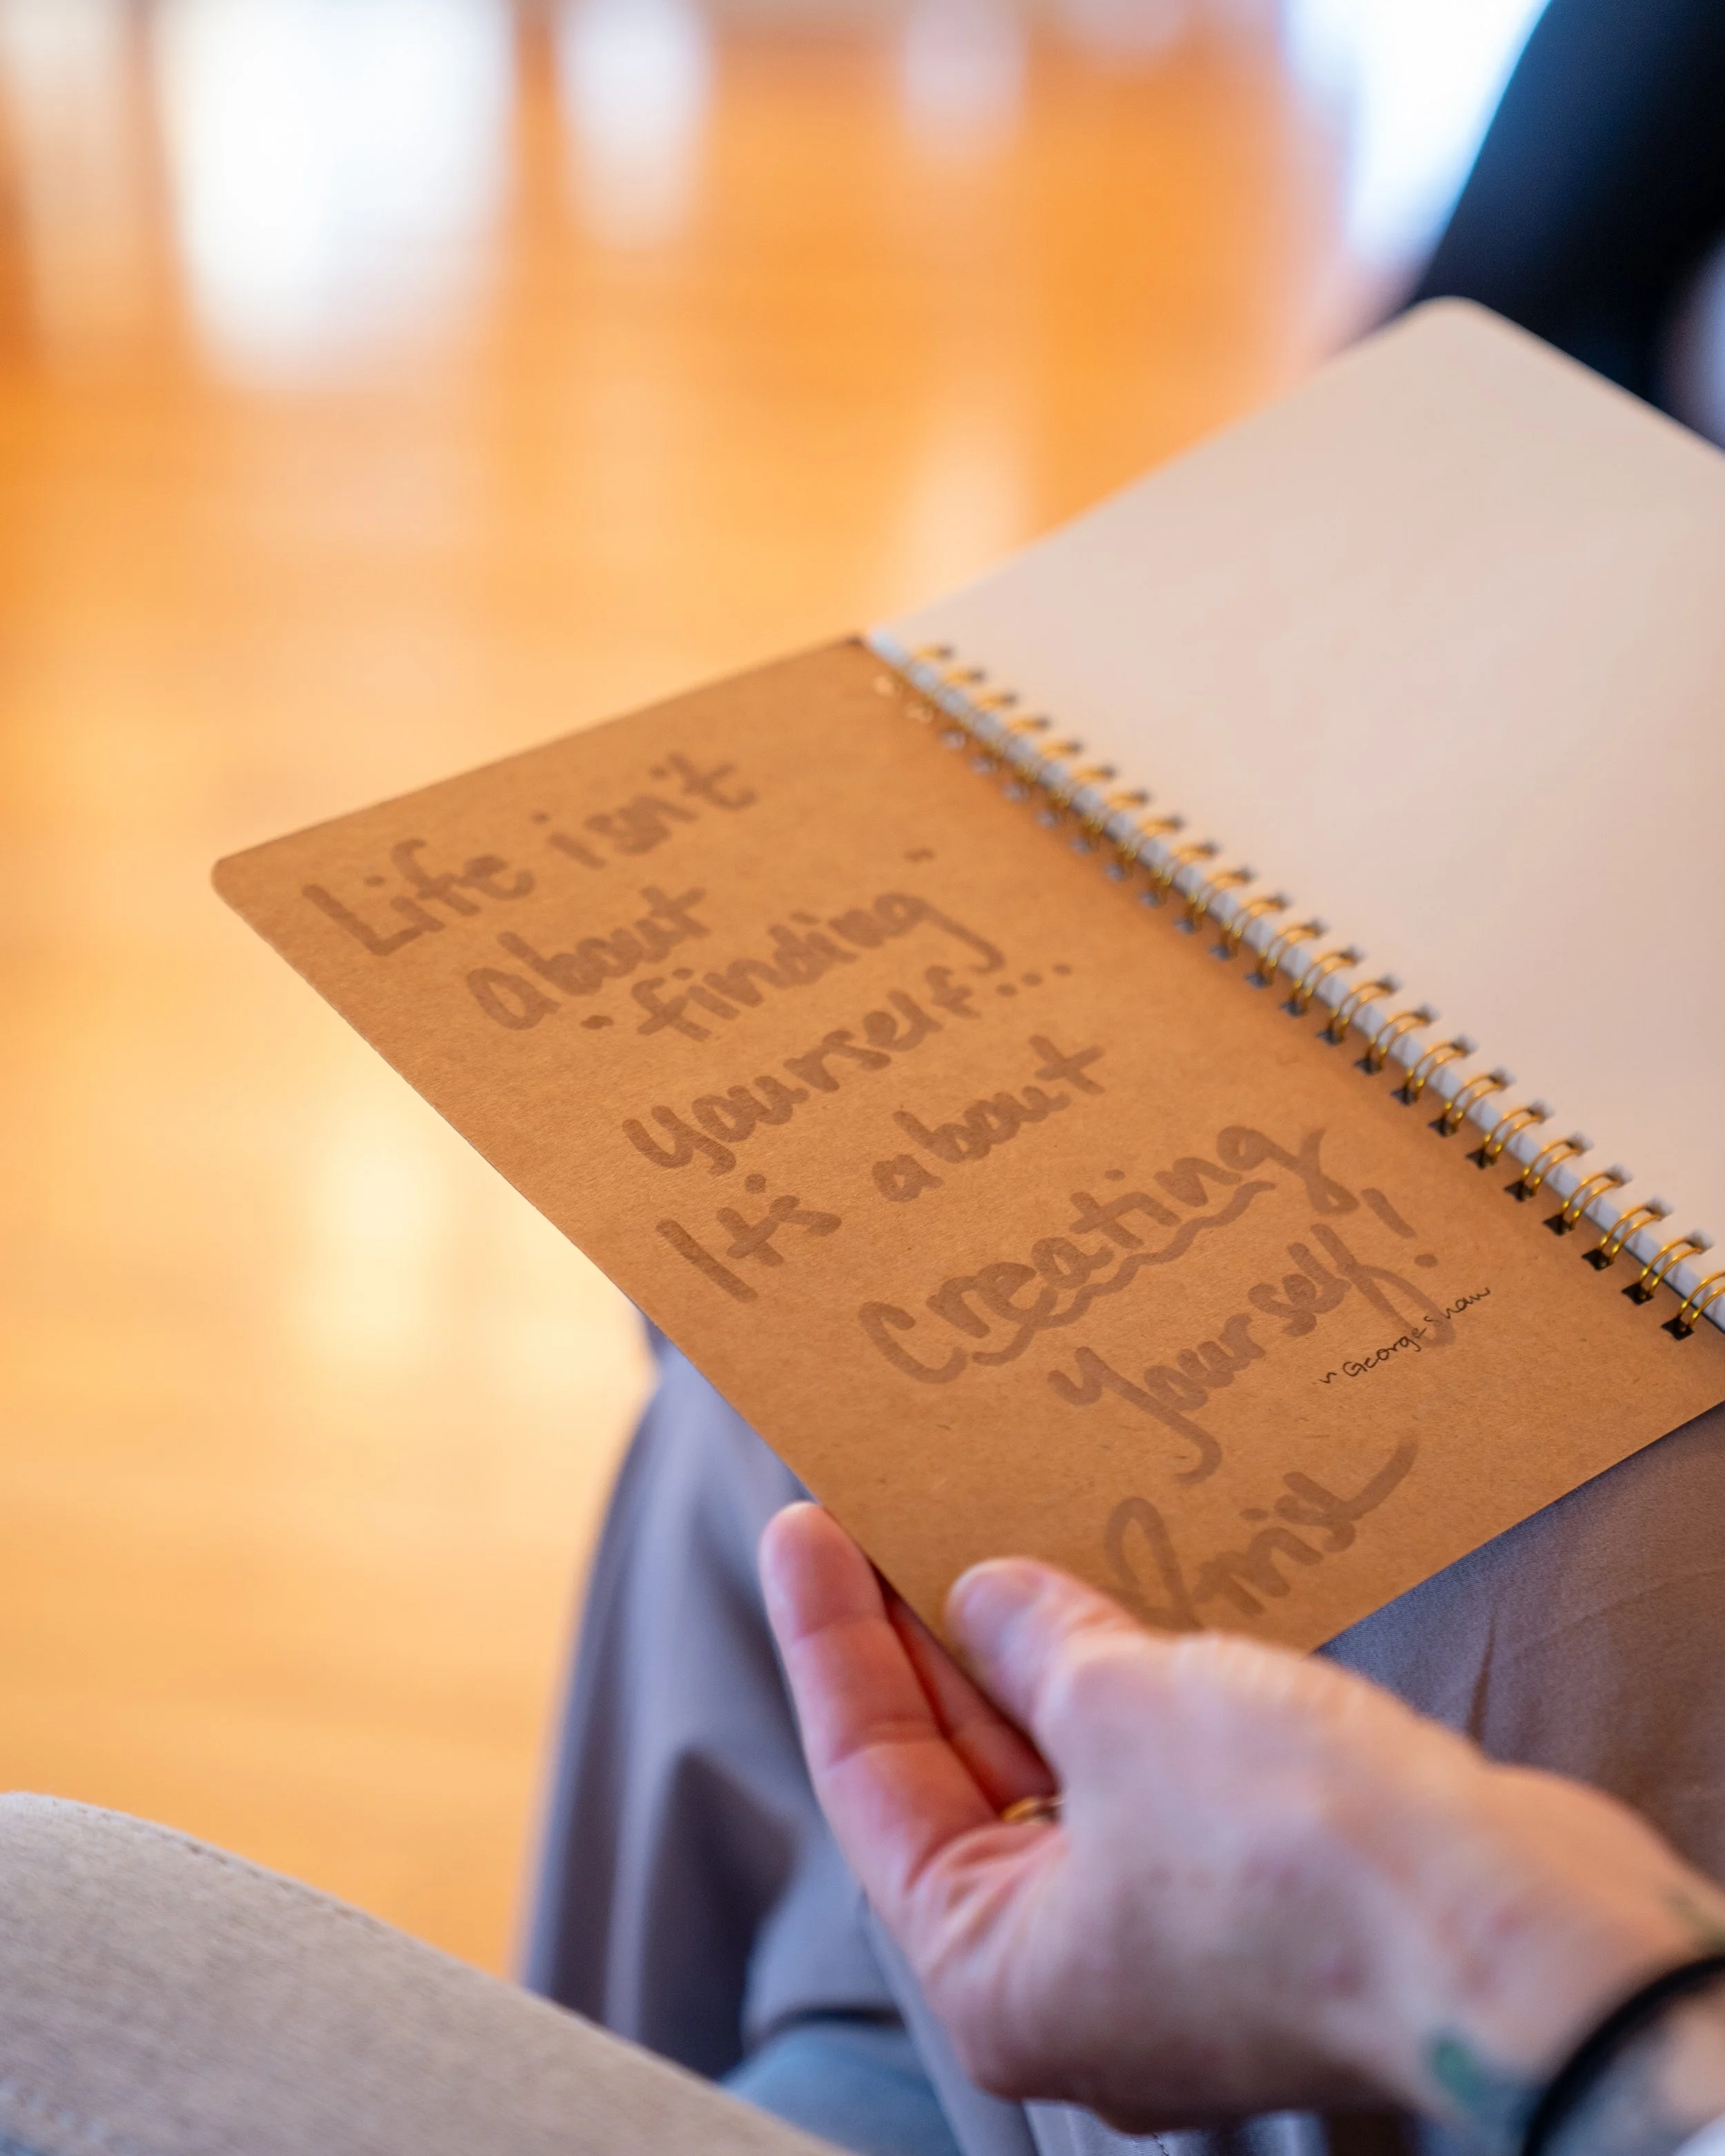 Life isn't
about
"finding"
yourself...
It's about
Creating
yourself!
~ George Shaw